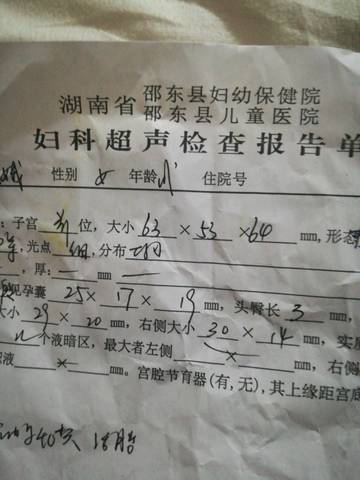 湖南省 邵东县妇幼保健院
邵东县儿童医院
妇科超声检查报告单
性别 女 年龄 住院号
: 子宫 前 位, 大小 63 × 53 ×64 mm, 形态
光点 细, 分布 均
, 厚: — mm —
见孕囊 25× 17 × 19 mm, 头臀长 3 mm,
大小 29 × 20 mm, 右侧大小 30 × 14 mm, 实质
个液暗区, 最大者左侧 × mm, 右侧
液 × mm。宫腔节育器(有, 无), 其上缘距宫底